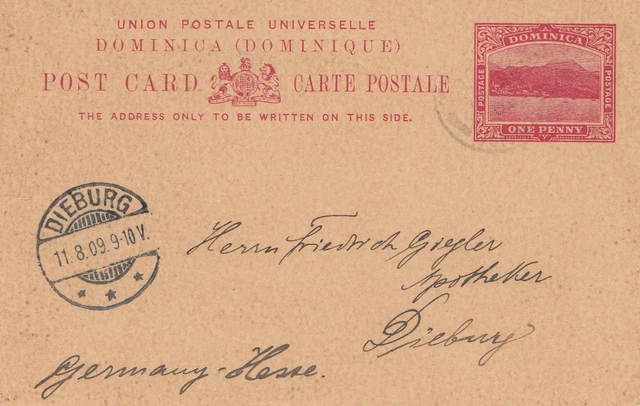 UNION POSTALE UNIVERSELLE
DOMINICA (DOMINIQUE)
POST CARD CARTE POSTALE
THE ADDRESS ONLY TO BE WRITTEN ON THIS SIDE.
DOMINICA
POSTAGE
POSTAGE
ONE PENNY
DIEBURG
11.8.09.9-10 V.
Herrn Friedrich Giegler
Apotheker
Dieburg
Germany-Hesse.